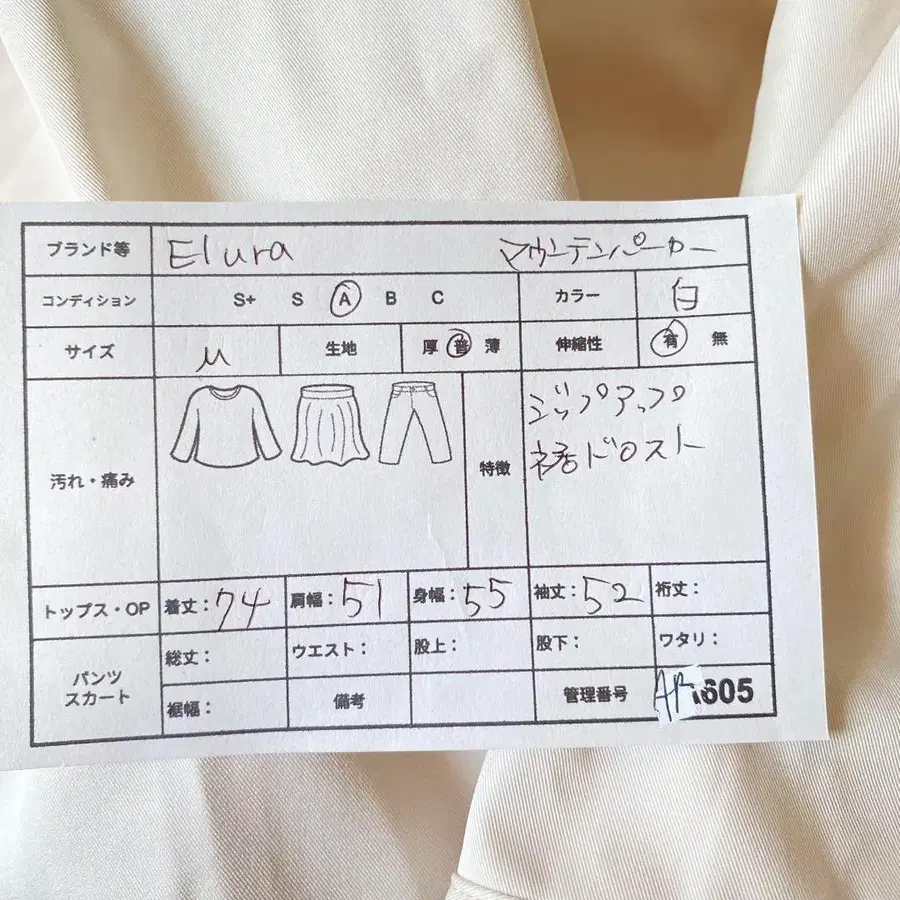 ブランド等 Elura マウンテンパーカー
コンディション S+ S A B C カラー 白
サイズ M 生地 厚 普 薄 伸縮性 有 無
汚れ・痛み 特徴 ジップアップ
裾ドロスト
トップス・OP 着丈：74 肩幅：51 身幅：55 袖丈：52 裄丈：
パンツ
スカート 総丈： ウエスト： 股上： 股下： ワタリ：
裾幅： 備考 管理番号 605